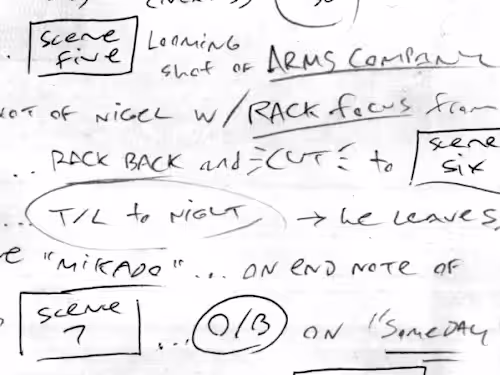 ... scene five Looming shot of ARMS COMPANY
OT OF NIGEL W/ RACK focus from
... RACK BACK and CUT to scene six
... T/L to NIGHT → he LEAVES,
"MIKADO" ... ON END NOTE OF
scene 7 ... O/B ON "SOMEDAY"